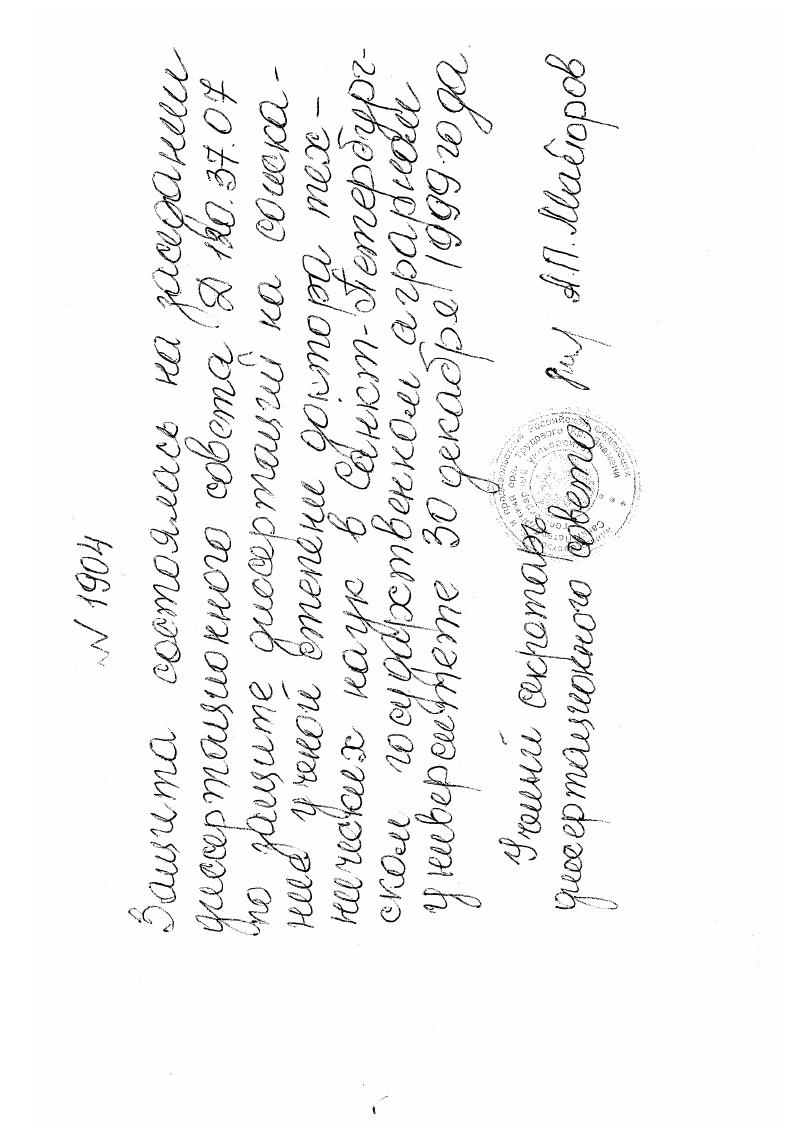 N 1904
Защита состоялась на заседании
диссертационного совета Д 120.37.07
по защите диссертаций на соиска-
ние ученой степени доктора тех-
нических наук в Санкт-Петербург-
ском государственном аграрном
университете 30 декабря 1999 года
Ученый секретарь
диссертационного совета А.П.
Российской Федерации
Трудового